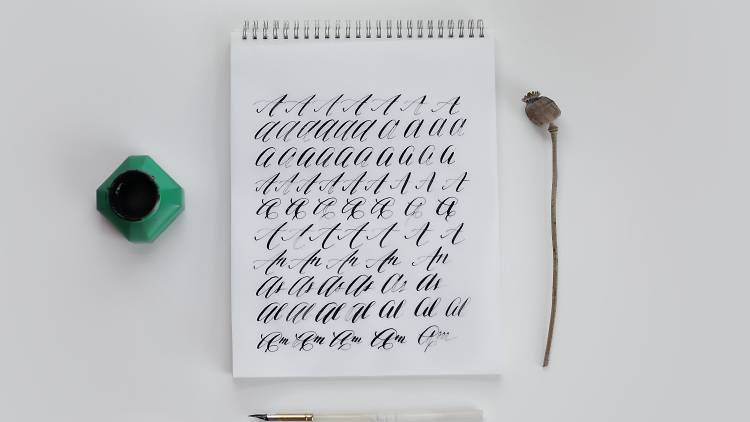 A A A A A A A
A A A A A A A A A A
A A A A A A A A A A
A A A A A A A A A
A A A A A A A
A A A A A A A
An An An An An
As As As As As As
Al Al Al Al Al Al Al
Am Am Am Am Am